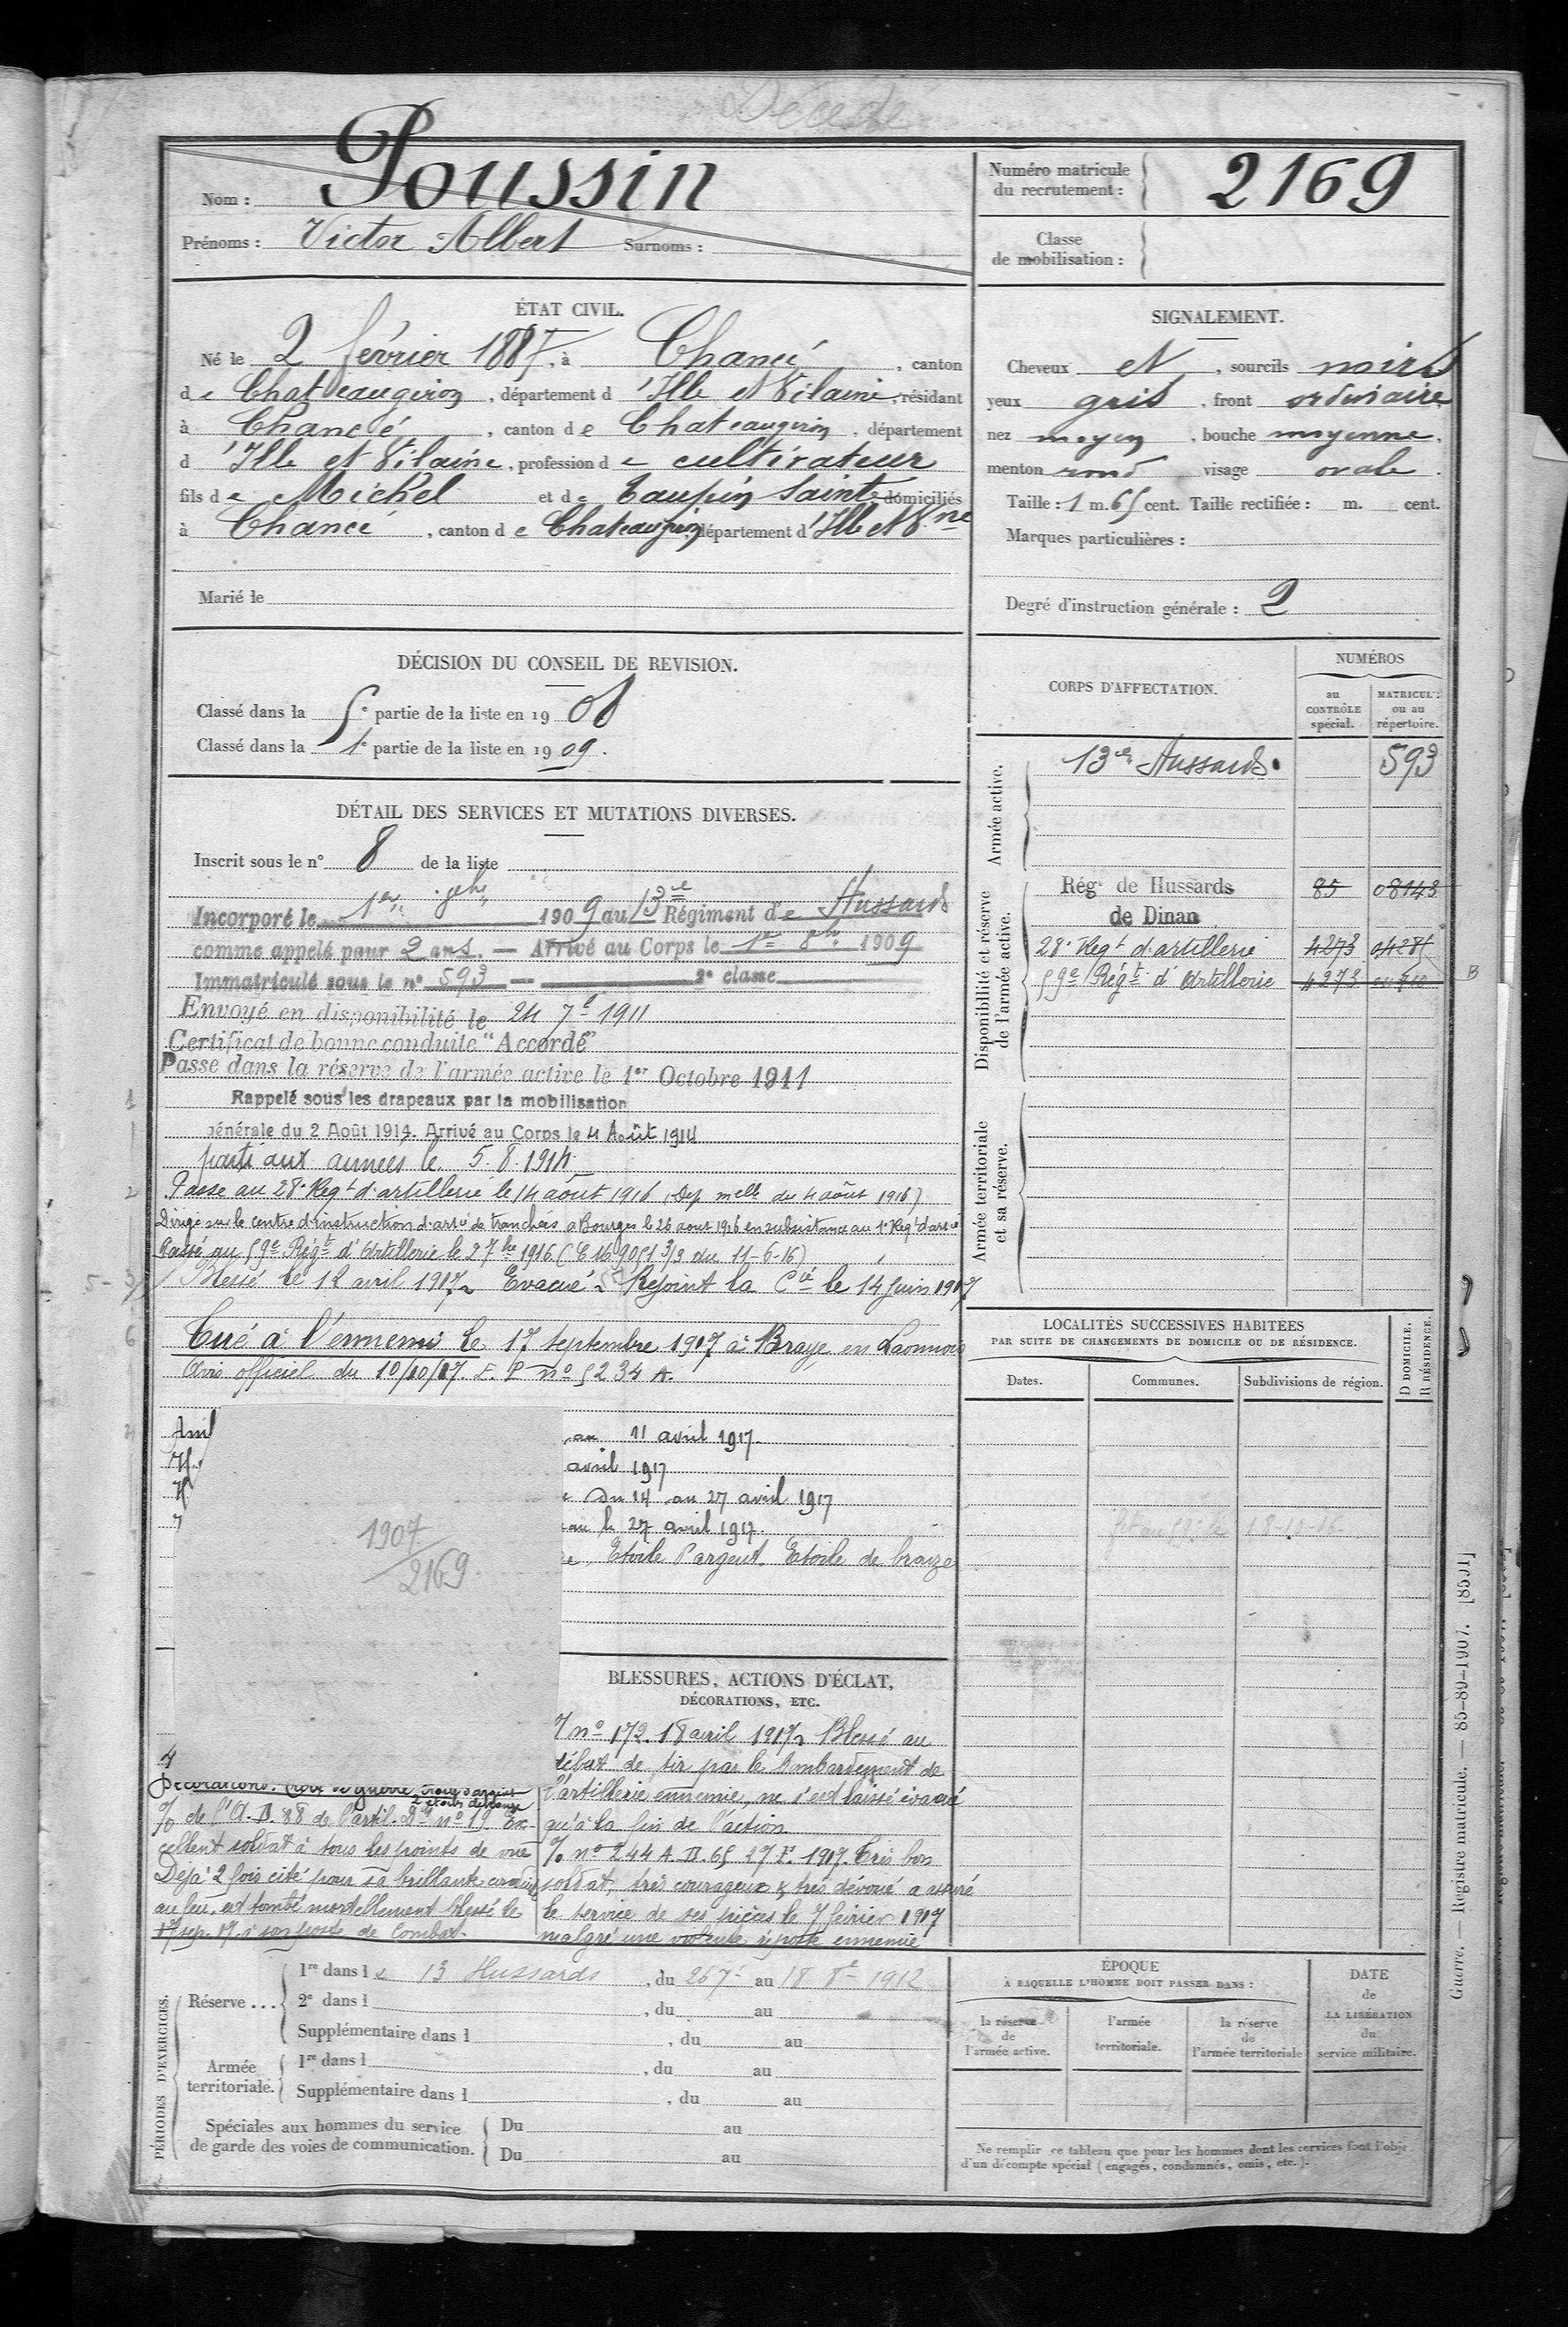 Décédé
Nom : Poussin
Prénoms : Victor Albert Surnoms :
Numéro matricule
du recrutement : 2169
Classe
de mobilisation :
ÉTAT CIVIL.
Né le 2 février 1887, à Chancé, canton
de Chateaugiron, département d'Ille et Vilaine, résidant
à Chancé, canton de Chateaugiron, département
d'Ille et Vilaine, profession de cultivateur
fils de Michel et de Taupin Sainte domiciliés
à Chancé, canton de Chateaugiron département d'Ille et Vne
Marié le
SIGNALEMENT.
Cheveux et, sourcils noirs
yeux gris, front ordinaire
nez moyen, bouche moyenne,
menton rond visage ovale.
Taille : 1 m. 65 cent. Taille rectifiée : m. cent.
Marques particulières :
Degré d'instruction générale : 2
DÉCISION DU CONSEIL DE REVISION.
Classé dans la 5e partie de la liste en 1908
Classé dans la 1e partie de la liste en 1909.
DÉTAIL DES SERVICES ET MUTATIONS DIVERSES.
Inscrit sous le n° 8 de la liste
Incorporé le 1er 8bre 1909 au 13e Régiment de Hussards
comme appelé pour 2 ans. — Arrivé au Corps le 1er 8bre 1909
Immatriculé sous le n° 593 — 2e classe
Envoyé en disponibilité le 24 7bre 1911
Certificat de bonne conduite "Accordé"
Passe dans la réserve de l'armée active le 1er Octobre 1911
Rappelé sous les drapeaux par la mobilisation
générale du 2 Août 1914. Arrivé au Corps le 4 Août 1914
parti aux armées le 5.8.1914
Passe au 28e Regt d'artillerie le 14 août 1916 (Dep melle du 4 août 1916)
Dirigé sur le centre d'instruction d'artie de tranchées a Bourges le 26 aout 1916 en subsistance au 1e Regt d'artie
Passé au 59e Régt d'Artillerie le 2 7bre 1916 (C 16.9051 3/3 du 11-6-16)
Blessé le 12 avril 1917. Evacué. Rejoint la Cie le 14 juin 1917
Tué à l'ennemi le 17 septembre 1917 à Braye en Laonnois
Avis officiel du 10/10/17. E. P n° 5234 A.
au 11 avril 1917.
avril 1917
Du 14 au 27 avril 1917
au le 27 avril 1917.
Etoile d'argent. Etoile de bronze
1907
2169
CORPS D'AFFECTATION.
NUMÉROS
au
CONTRÔLE
spécial.
MATRICULE
ou au
répertoire.
Armée active.
13e Hussards. 593
Disponibilité et réserve
de l'armée active.
Régt de Hussards 85 08143
de Dinan
28e Regt d'artillerie 4273 04285
59e Régt d'Artillerie 4273
B
Armée territoriale
et sa réserve.
LOCALITÉS SUCCESSIVES HABITÉES
PAR SUITE DE CHANGEMENTS DE DOMICILE OU DE RÉSIDENCE.
Dates.
Communes.
Subdivisions de région.
D DOMICILE.
R RÉSIDENCE.
18-10-16
BLESSURES, ACTIONS D'ÉCLAT,
DÉCORATIONS, ETC.
n° 172. 18 avril 1917. Blessé au
début de tir par le bombardement de
l'artillerie ennemie, ne s'est laissé évacué
qu'à la fin de l'action
% n° 244 A. D. 65 27 1917. Très bon
soldat, très courageux & très dévoué a assuré
le service de ses pièces le 7 février 1917
malgré une violente riposte ennemie
Décorations. Croix de guerre
% de l'A. D. 88 de l'artil. n° 19. Ex-
cellent soldat à tous les points de vue
Déjà 2 fois cité pour sa brillante conduite
au feu, est tombé mortellement blessé le
17 sep. 17 à son poste de Combat.
PÉRIODES D'EXERCICES.
Réserve ...
1re dans le 13 Hussards, du 26 7bre au 18 8bre 1912
2e dans l, du au
Supplémentaire dans l, du au
Armée
territoriale.
1re dans l, du au
Supplémentaire dans l, du au
Spéciales aux hommes du service
de garde des voies de communication.
Du au
Du au
ÉPOQUE
À LAQUELLE L'HOMME DOIT PASSER DANS :
la réserve
de
l'armée active.
l'armée
territoriale.
la réserve
de
l'armée territoriale
DATE
de
LA LIBÉRATION
du
service militaire.
Ne remplir ce tableau que pour les hommes dont les services font l'objet
d'un décompte spécial (engagés, condamnés, omis, etc.).
Guerre. — Registre matricule. — 85-89-1907. [8591]